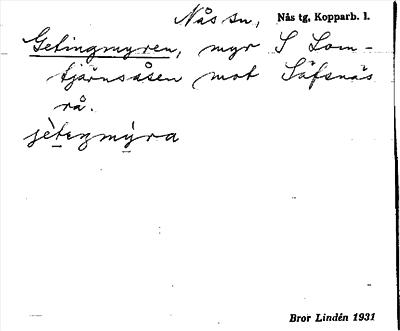 Nås sn, Nås tg, Kopparb. l.
Getingmyren, myr S Lom-
tjärnsåsen mot Säfsnäs
rå.
jètęŋmýra
Bror Lindén 1931